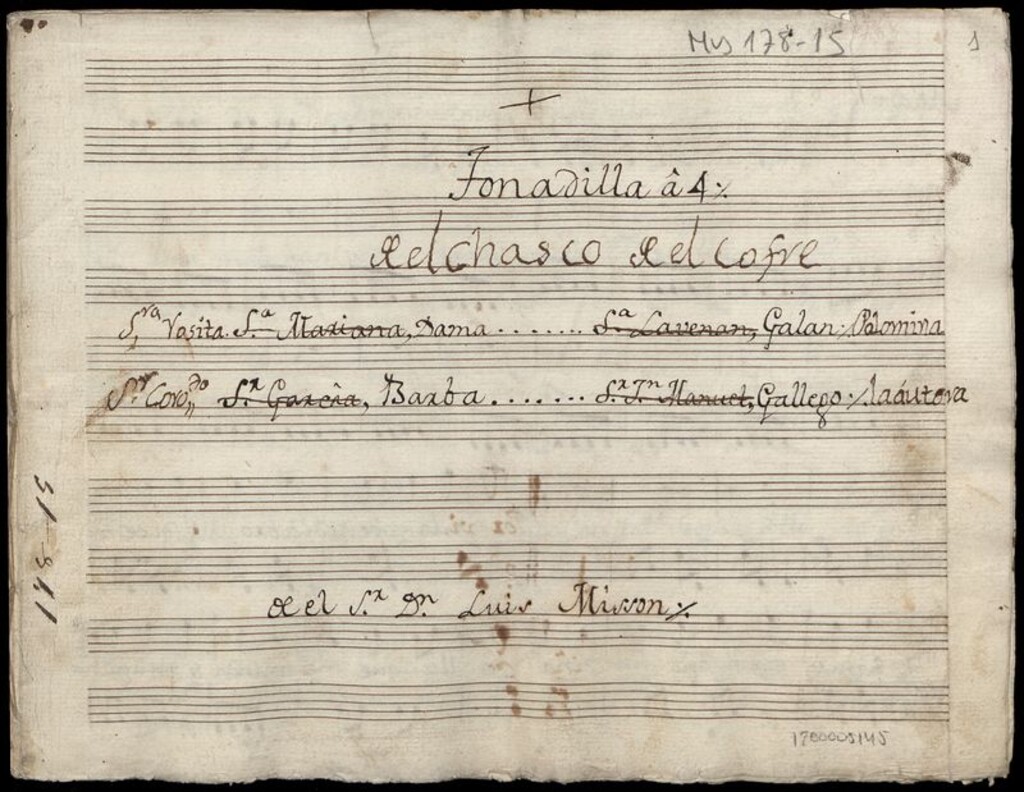 Mus 178-15
1
+
Tonadilla â 4 ⁒
del Chasco del Cofre
S,ra Vasita. S.a Mariana, Dama ........ S.a Lavenan, Galan ⁒ Palomina
S.r Coro,,do S.r Garcia, Barba ....... S.r Jn Manuel, Gallego ⁒ La áutora
del S.r Dn. Luis Misson ⁒
178-15
1200005145